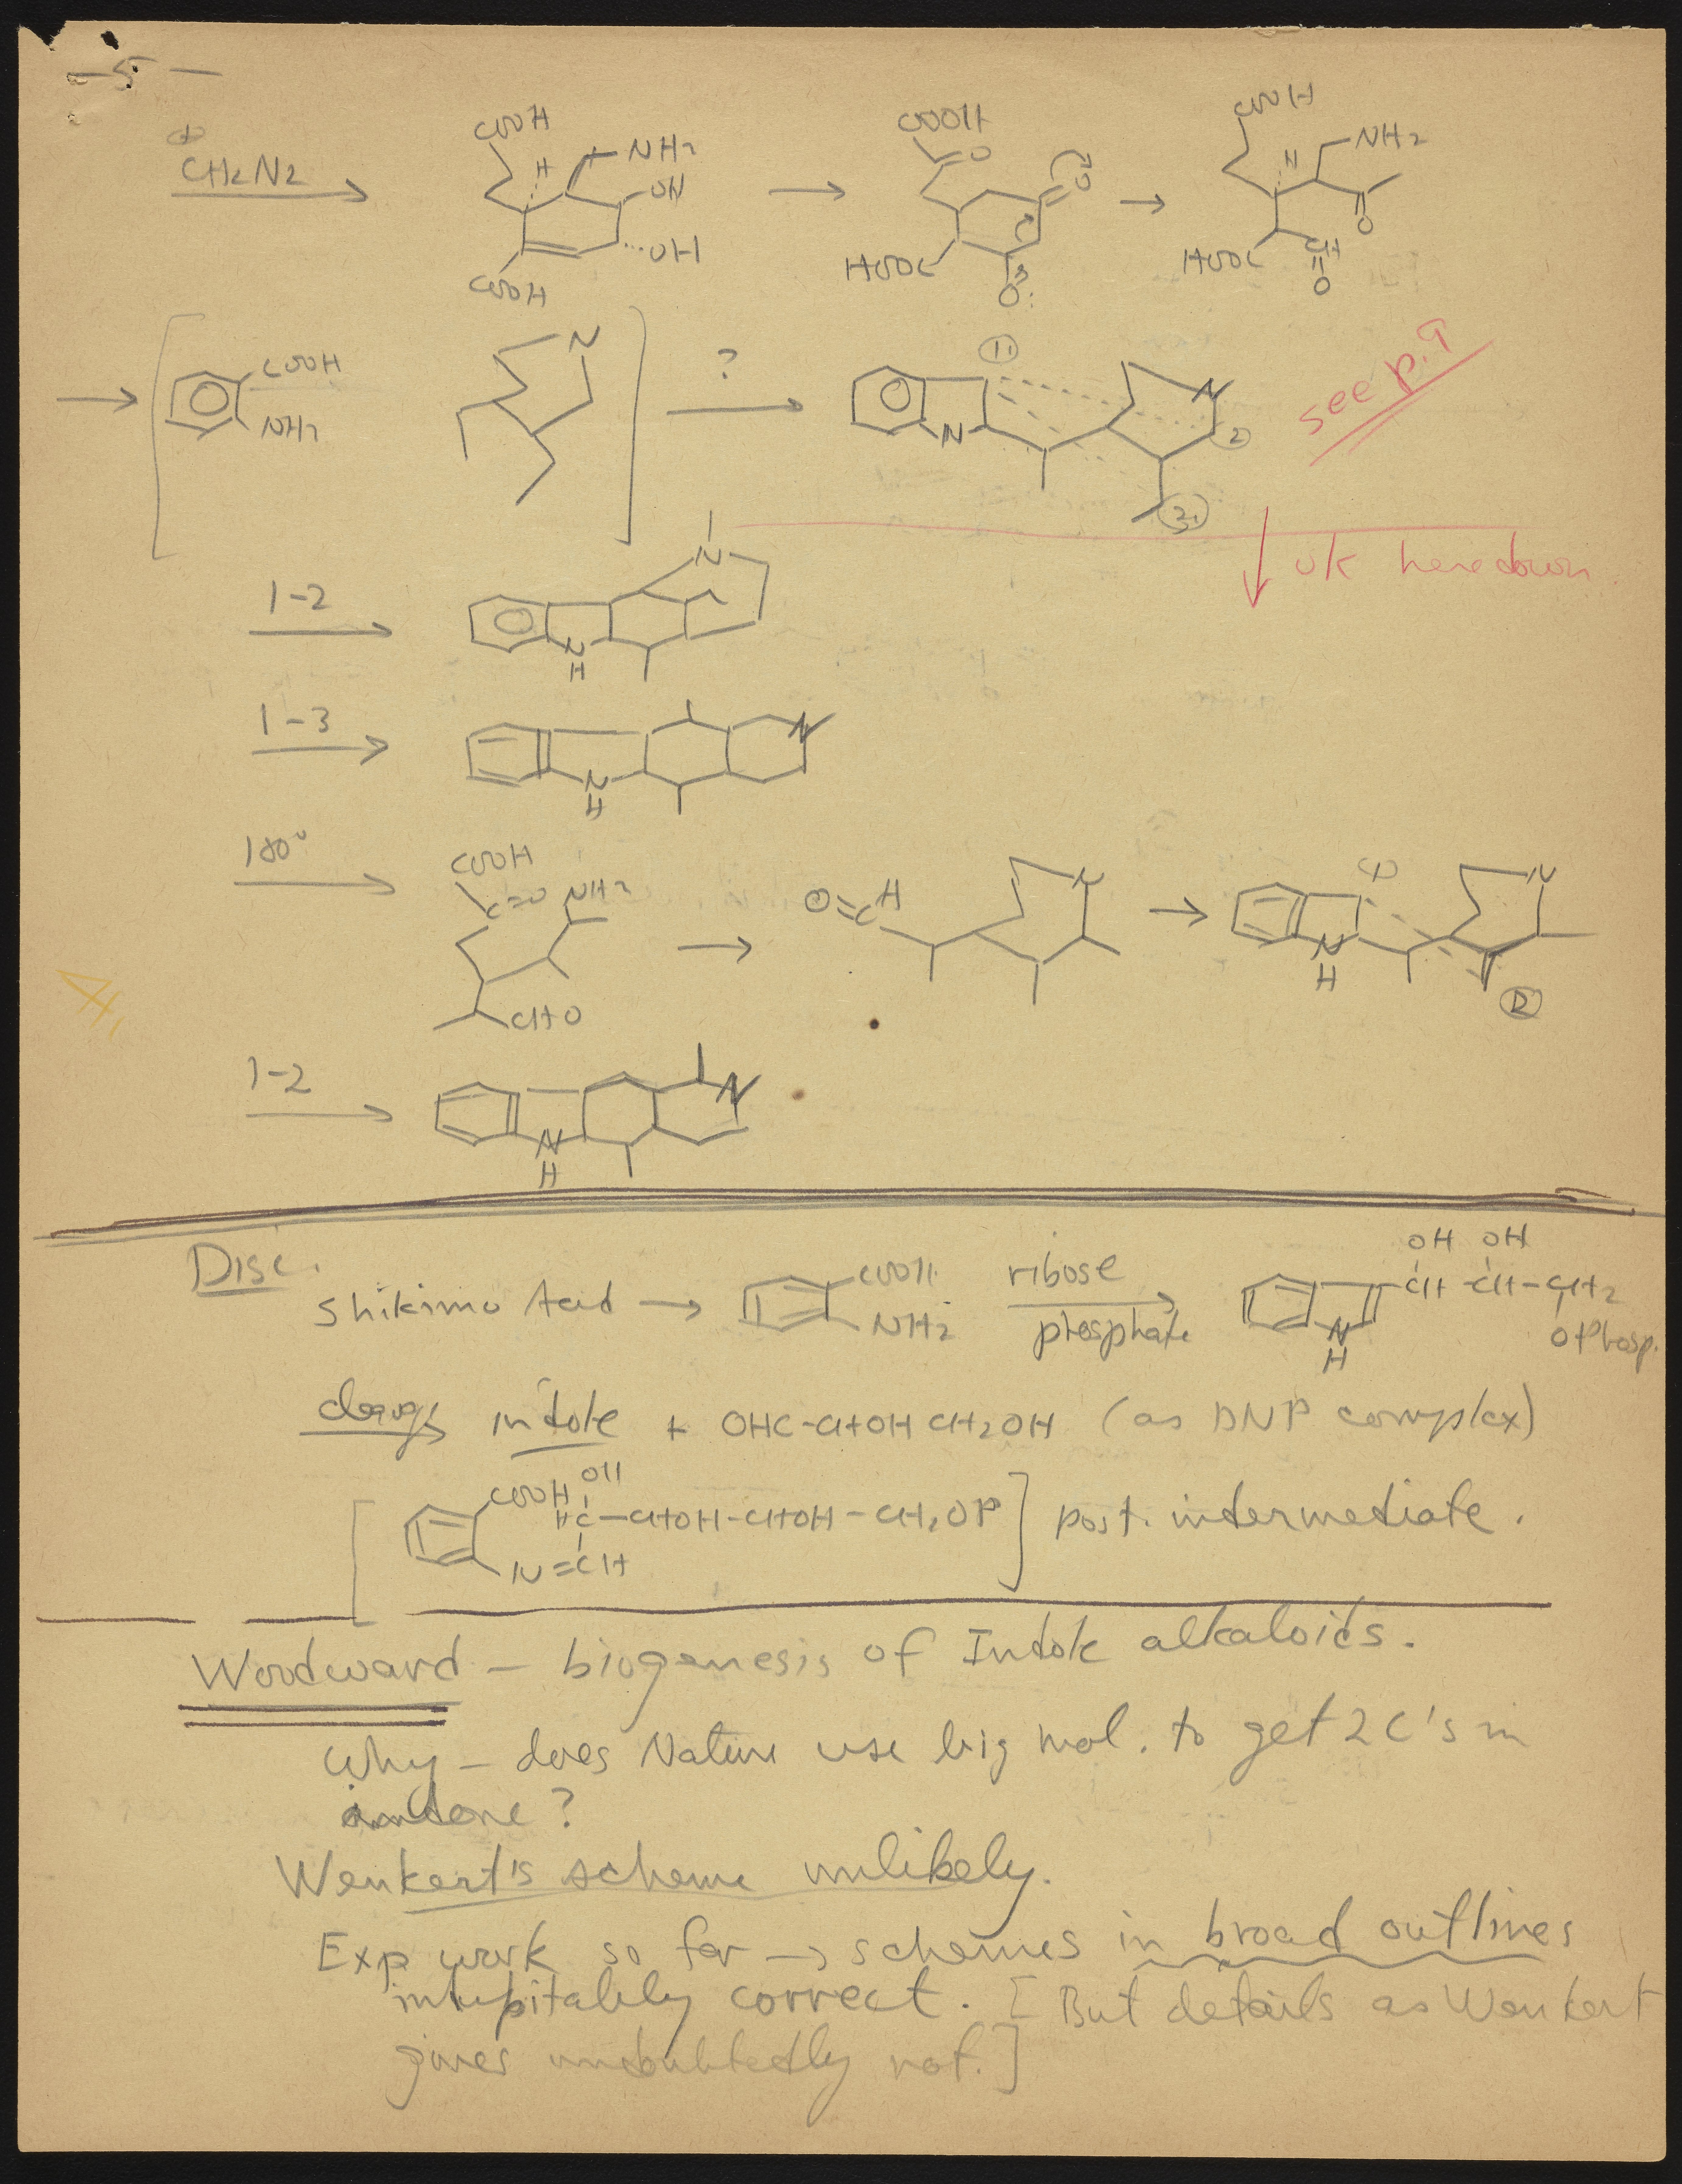 -5-
⊕
CH2N2
COOH
H
NH2
OH
OH
COOH
COOH
O
O
HOOC
O
COOH
H
NH2
O
HOOC
CH
O
COOH
NH2
N
?
1.
N
N
2
3.
see p. 9
↓ OK here down
1-2
N
N
H
1-3
N
N
H
180°
COOH
C=O NH2
CHO
O=C H
N
1
N
N
H
2
1-2
N
N
H
Disc.
COOH
NH2
ribose
phosphate
OH OH
CH-CH-CH2
N
H
O Phosp.
Shikimic Acid →
indole + OHC-CHOH CH2OH (as DNP complex)
[ COOH
OH
HC-CHOH-CHOH-CH2OP ] post. intermediate.
N=CH
Woodward - biogenesis of Indole alkaloids.
Why - does Nature use big mol. to get 2 C's in
?
Wenkert's scheme unlikely.
Exp work so far → schemes in broad outlines
correct. [But details as Wenkert
gives undoubtedly not.]